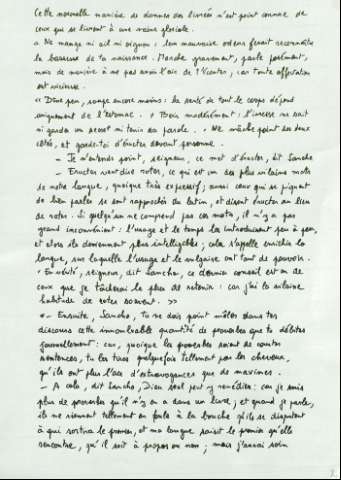 Cette nouvelle manière de donner des livrées n'est point connue de
ceux qui se livrent à une vaine gloriole.
« Ne mange ni ail ni oignon : leur mauvaise odeur ferait reconnaître
la bassesse de ta naissance. Marche gravement, parle posément,
mais de manière à ne pas avoir l'air de t'écouter, car toute affectation
est vicieuse.
« Dîne peu, soupe encore moins : la santé de tout le corps dépend
uniquement de l'estomac. « Bois modérément : l'ivresse ne sait
ni garder un secret ni tenir sa parole. « Ne mâche point des deux
côtés, et garde-toi d'éructer devant personne.
– Je n'entends point, seigneur, ce mot d'éructer, dit Sancho
– Eructer veut dire roter, ce qui est un des plus vilains mots
de notre langue, quoique très expressif ; aussi ceux qui se piquent
de bien parler se sont rapprochés du latin, et disent éructer au lieu
de roter. Si quelqu'un ne comprend pas ces mots, il n'y a pas
grand inconvénient : l'usage et le temps les introduisent peu à peu,
et alors ils deviennent plus intelligibles ; cela s'appelle enrichir la
langue, sur laquelle l'usage et le vulgaire ont tant de pouvoir.
– En vérité, seigneur, dit Sancho, ce dernier conseil est un de
ceux que je tâcherai le plus de retenir : car j'ai la vilaine
habitude de roter souvent. »
« – Ensuite, Sancho, tu ne dois point mêler dans tes
discours cette innombrable quantité de proverbes que tu débites
journellement : car, quoique les proverbes soient de courtes
sentences, tu les tires quelquefois tellement par les cheveux,
qu'ils ont plus l'air d'extravagances que de maximes.
– A cela, dit Sancho, Dieu seul peut y remédier : car je sais
plus de proverbes qu'il n'y en a dans un livre ; et quand je parle,
ils me viennent tellement en foule à la bouche qu'ils se disputent
à qui sortira le premier, et ma langue saisit le premier qu'elle
rencontre, qu'il soit à propos ou non ; mais j'aurai soin